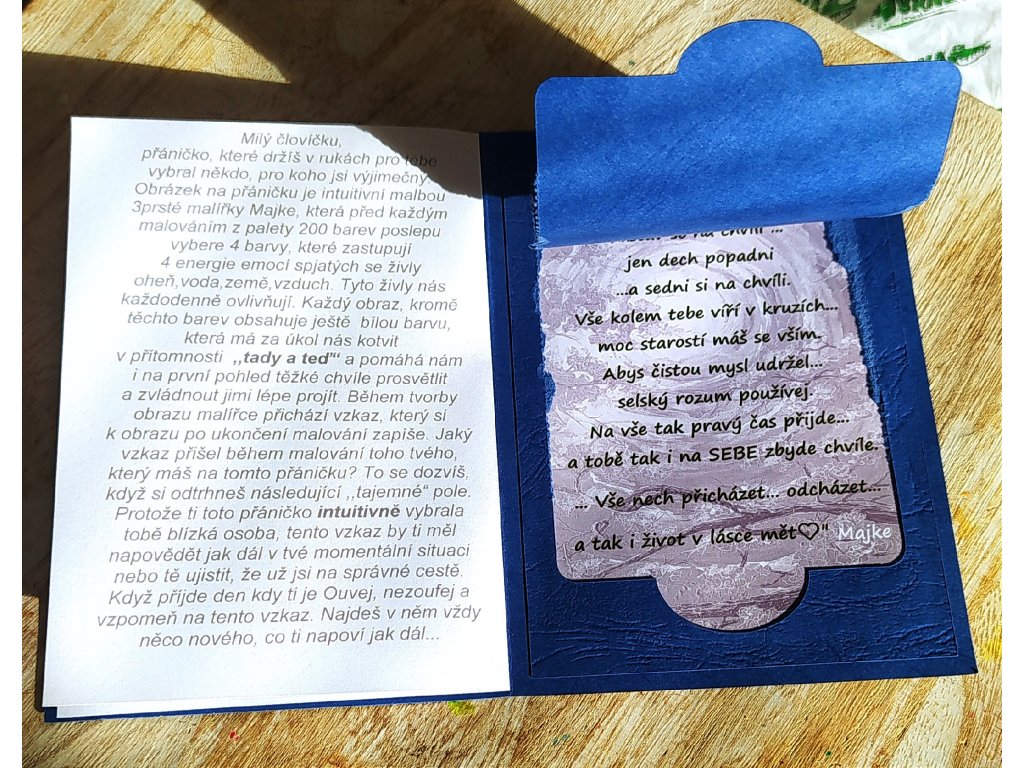 Milý človíčku,
přáničko, které držíš v rukách pro tebe
vybral někdo, pro koho jsi výjimečný.
Obrázek na přáničku je intuitivní malbou
3prsté malířky Majke, která před každým
malováním z palety 200 barev poslepu
vybere 4 barvy, které zastupují
4 energie emocí spjatých se živly
oheň,voda,země,vzduch. Tyto živly nás
každodenně ovlivňují. Každý obraz, kromě
těchto barev obsahuje ještě bílou barvu,
která má za úkol nás kotvit
v přítomnosti ,,tady a teď"“ a pomáhá nám
i na první pohled těžké chvíle prosvětlit
a zvládnout jimi lépe projít. Během tvorby
obrazu malířce přichází vzkaz, který si
k obrazu po ukončení malování zapíše. Jaký
vzkaz přišel během malování toho tvého,
který máš na tomto přáničku? To se dozvíš,
když si odtrhneš následující ,,tajemné“ pole.
Protože ti toto přáničko intuitivně vybrala
tobě blízká osoba, tento vzkaz by ti měl
napovědět jak dál v tvé momentální situaci
nebo tě ujistit, že už jsi na správné cestě.
Když příjde den kdy ti je Ouvej, nezoufej a
vzpomeň na tento vzkaz. Najdeš v něm vždy
něco nového, co ti napoví jak dál...
se na chvíli ...
jen dech popadni
...a sedni si na chvíli.
Vše kolem tebe víří v kruzích...
moc starostí máš se vším.
Abys čistou mysl udržel...
selský rozum používej.
Na vše tak pravý čas přijde...
a tobě tak i na SEBE zbyde chvíle.
... Vše nech přicházet... odcházet...
a tak i život v lásce mět♡" Majke